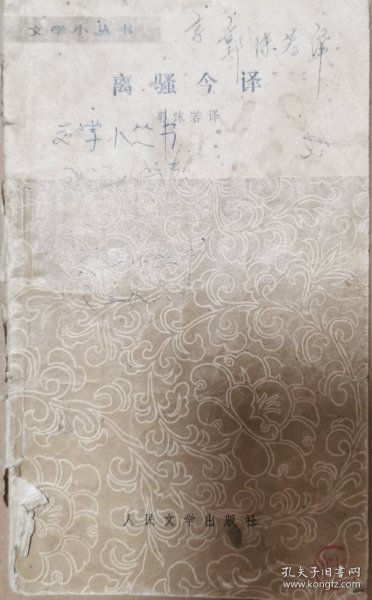 文学小丛书
郭沫若译
离骚今译
郭沫若译
文学小丛书
人民文学出版社
孔夫子旧书网
www.kongfz.com